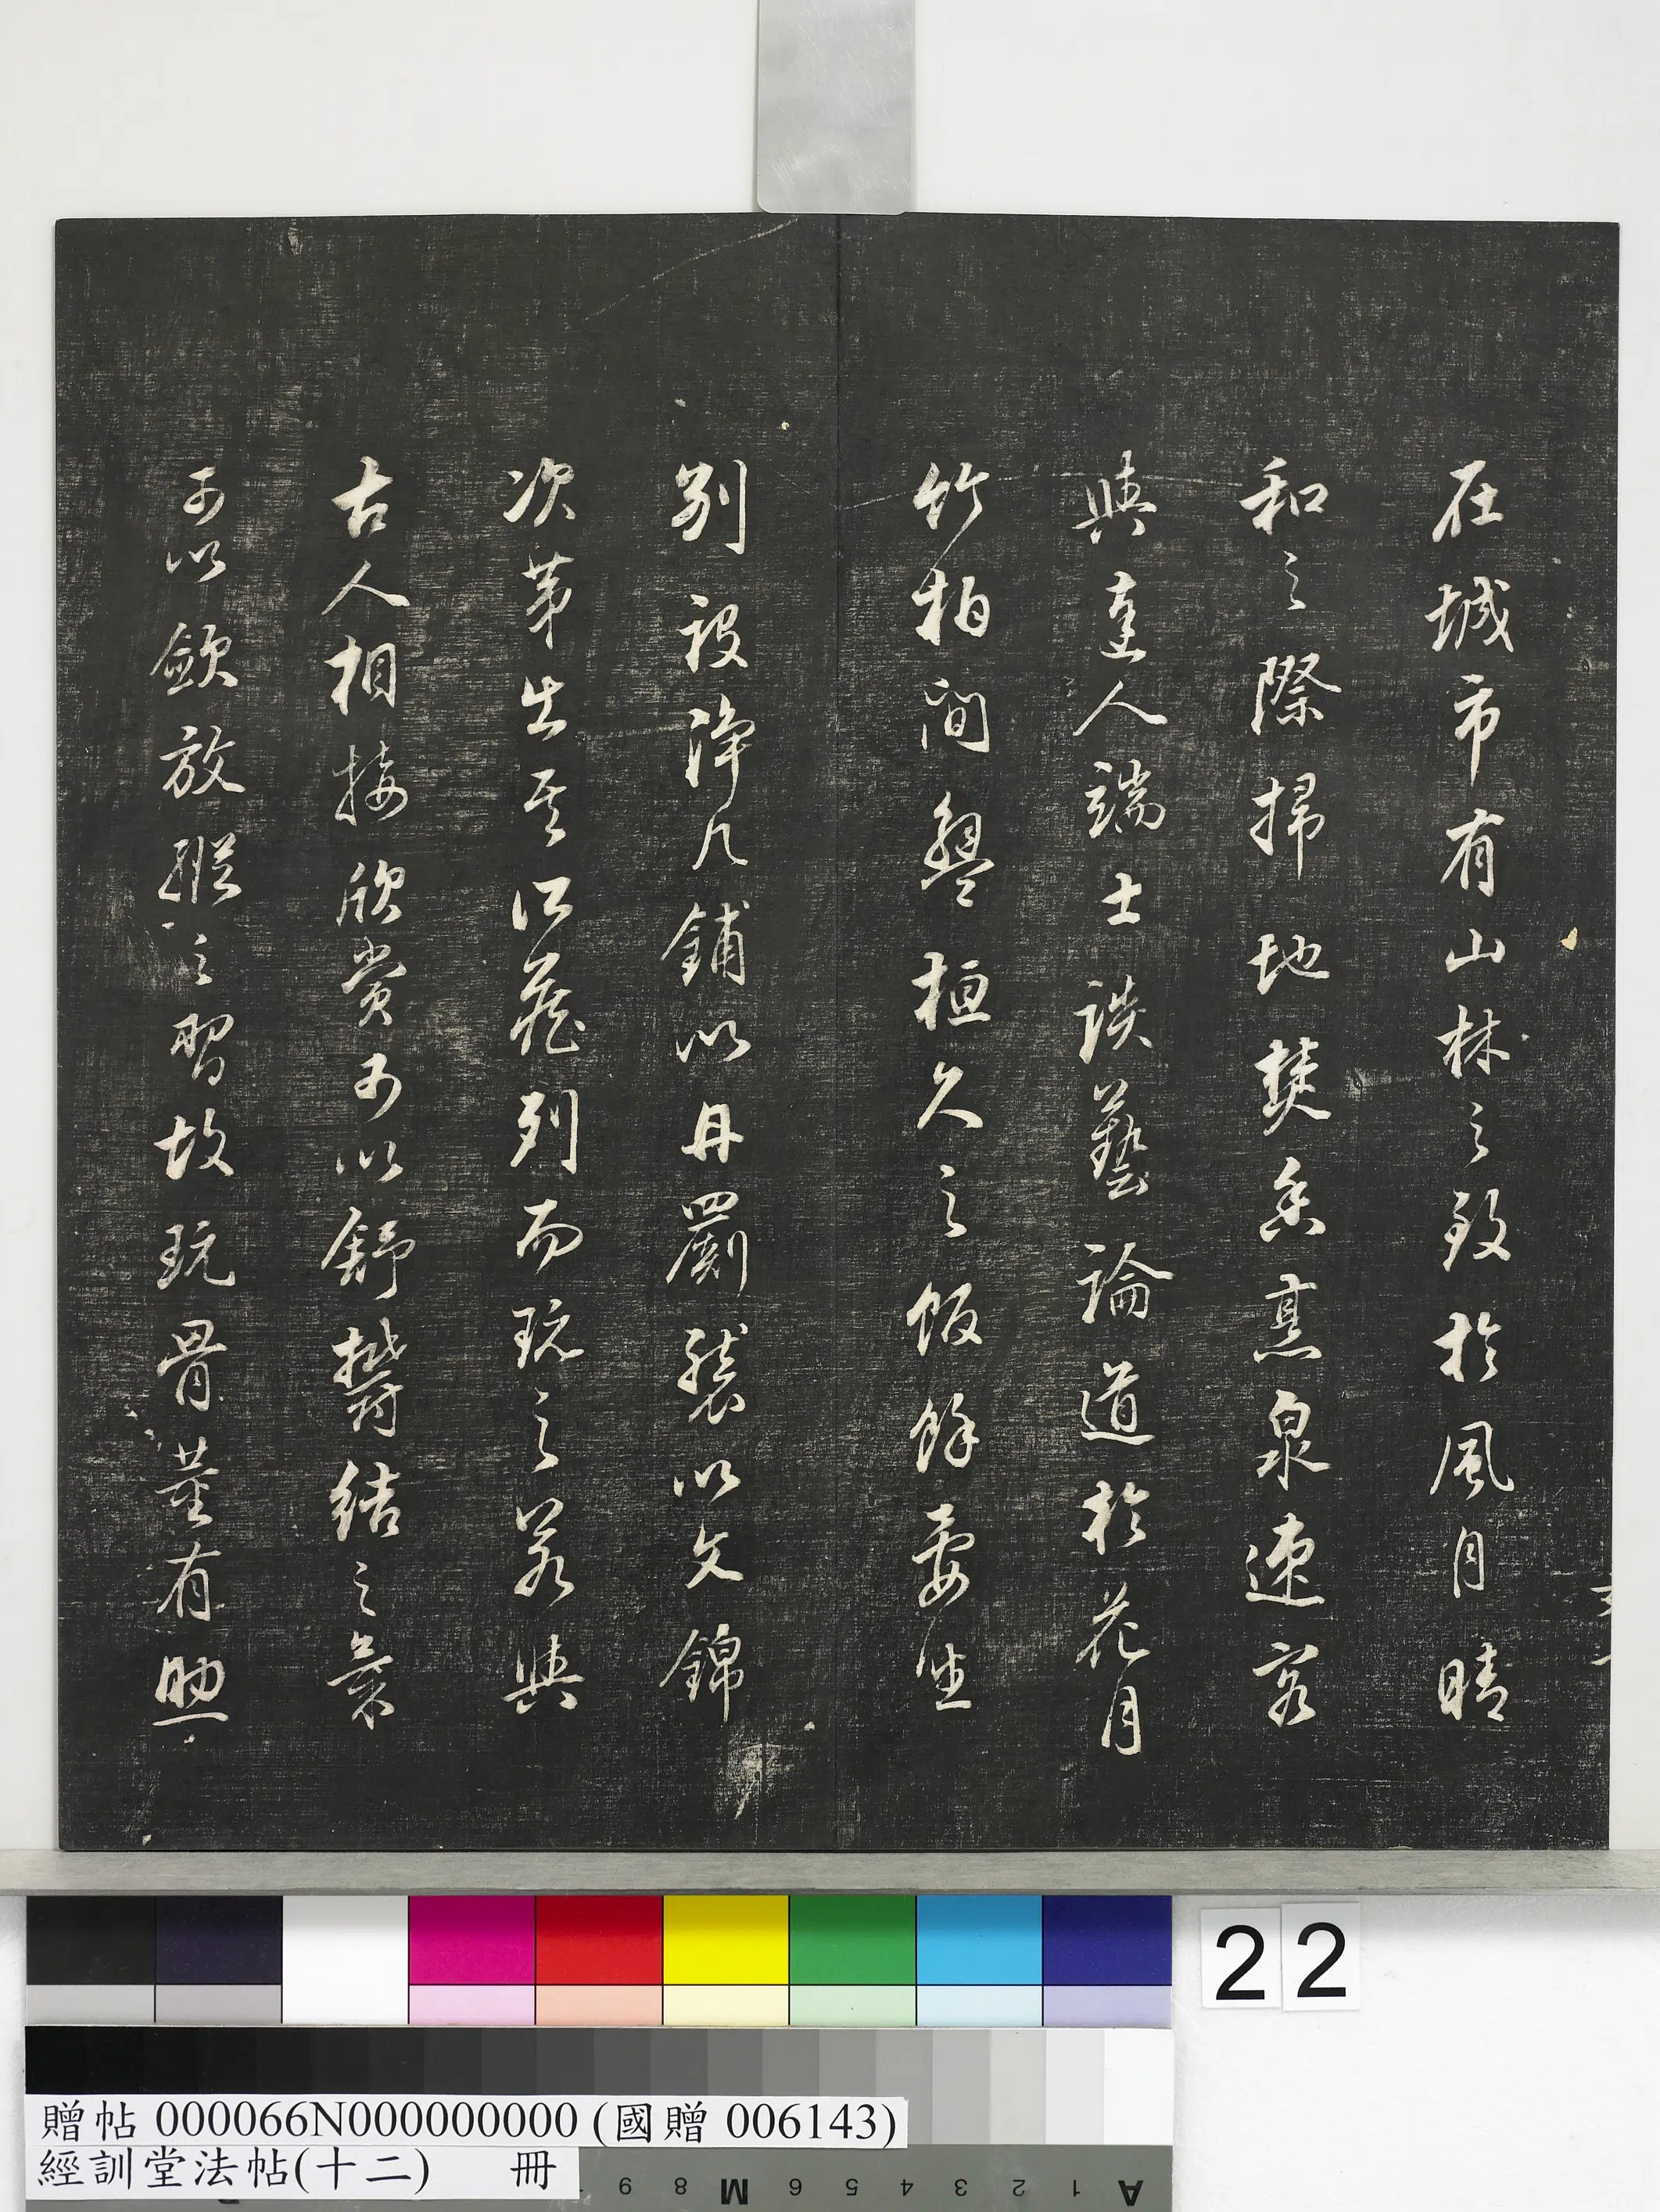 在城市有山林之致於風月晴
和之際掃地焚香烹泉速客
與達人端士談藝論道於花月
竹柏間盤桓久之飯餘晏坐
別設淨几鋪以丹罽襲以文錦
次第出其所藏列而玩之若與
古人相接欣賞可以舒鬱結之氣
可以斂放縱之習故玩骨董有助
22
贈帖 000066N000000000 (國贈 006143)
經訓堂法帖(十二) 冊
9 8 M 6 5 4 3 2 1 A